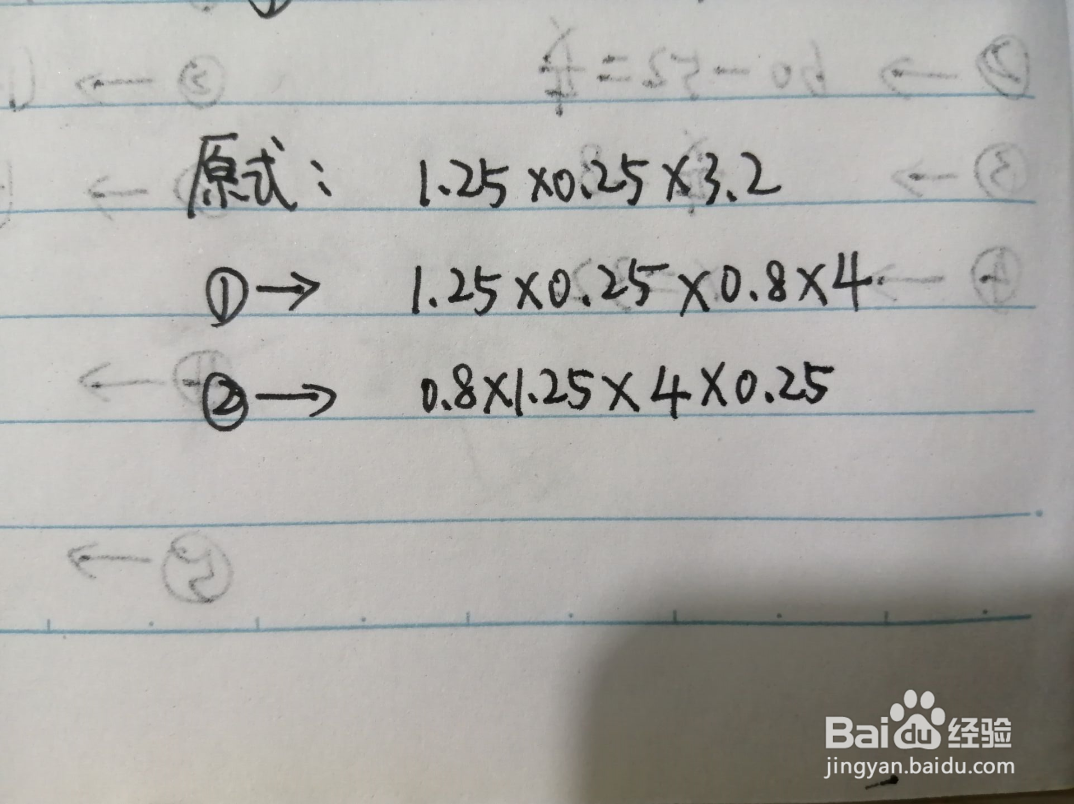 原式： 1.25×0.25×3.2
①→ 1.25×0.25×0.8×4
②→ 0.8×1.25×4×0.25
Baidu经验
jingyan.baidu.com